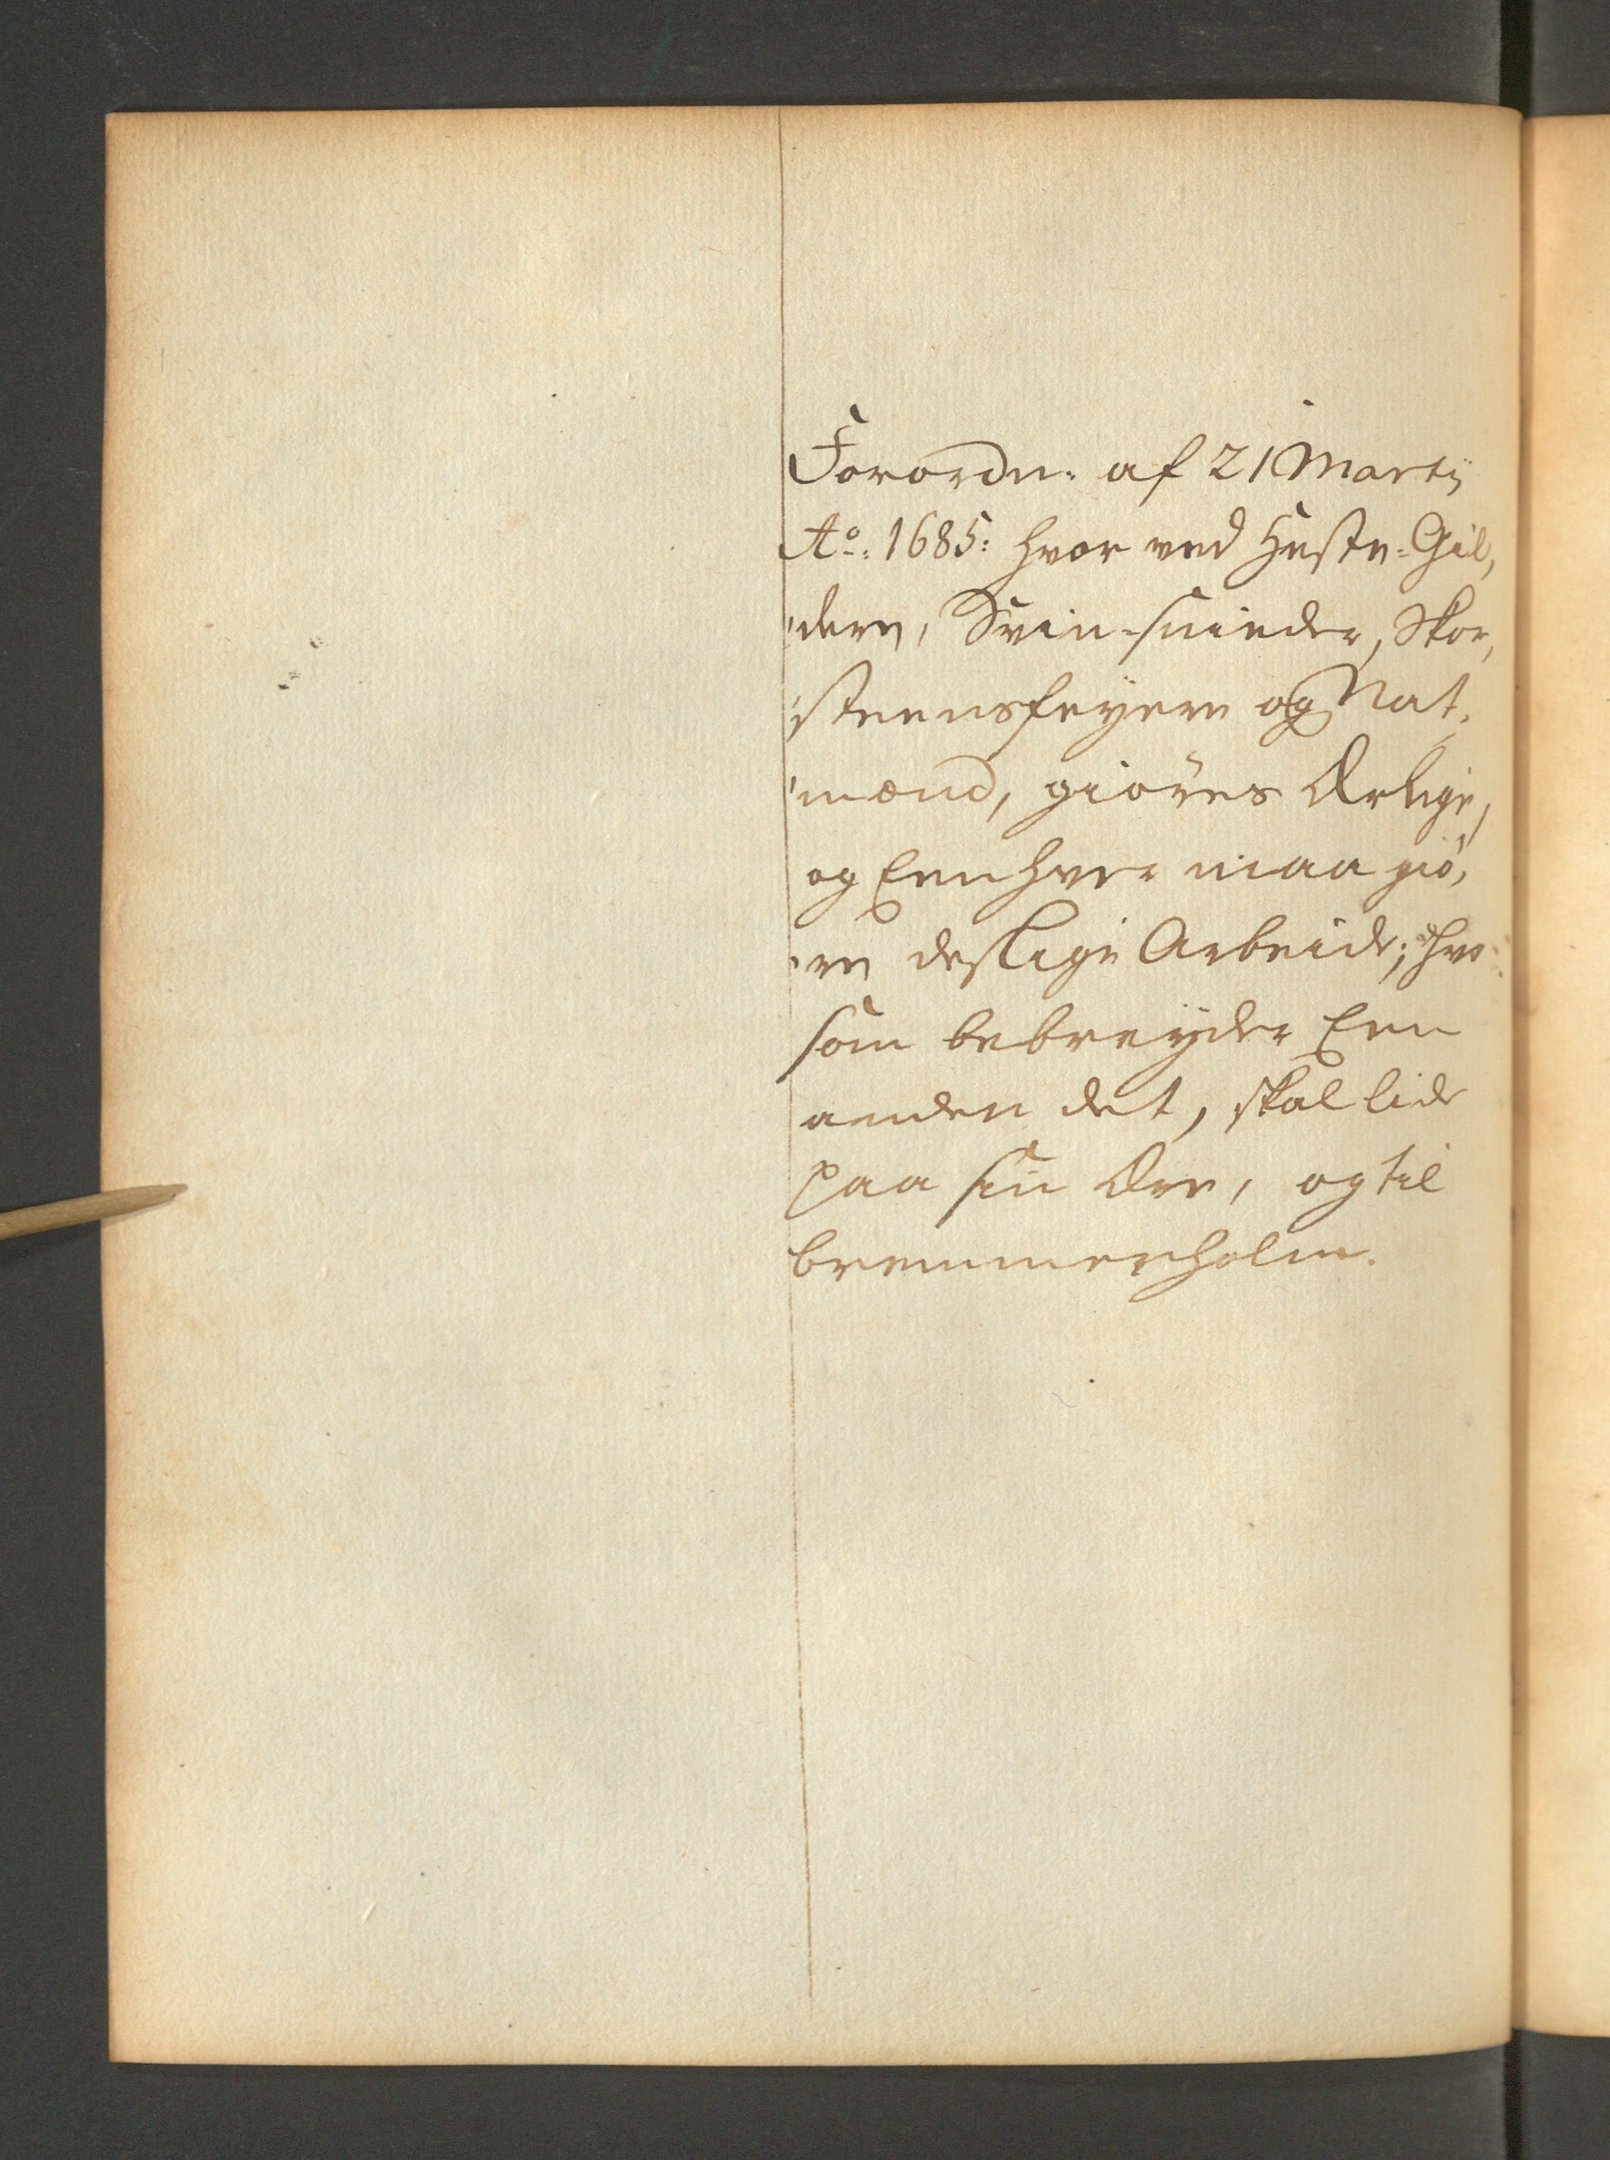 Forordn: af 21 Martij
Aº: 1685: hvor ved Heste=Gil,
,dere, Svin-snieder, Skor,
,steensfeyere og Nat,
,mænd, giöres Ærlige,
og Een hver maa giö,
,re deslige Arbeide; hvo
som bebreyder Een
anden det, skal lide
paa sin Ære, og til
bremmerholm.